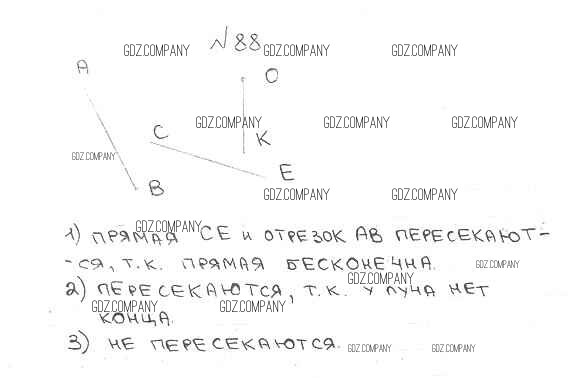 №88
GDZ.COMPANY GDZ.COMPANY GDZ.COMPANY
A
O
GDZ.COMPANY GDZ.COMPANY GDZ.COMPANY
C
K
GDZ.COMPANY
E
B
GDZ.COMPANY GDZ.COMPANY
GDZ.COMPANY
1) ПРЯМАЯ CE и ОТРЕЗОК AB ПЕРЕСЕКАЮТ-
-СЯ, Т.К. ПРЯМАЯ БЕСКОНЕЧНА.
GDZ.COMPANY
GDZ.COMPANY
2) ПЕРЕСЕКАЮТСЯ, Т.К. У ЛУЧА НЕТ
GDZ.COMPANY GDZ.COMPANY
КОНЦА.
3) НЕ ПЕРЕСЕКАЮТСЯ.
GDZ.COMPANY GDZ.COMPANY